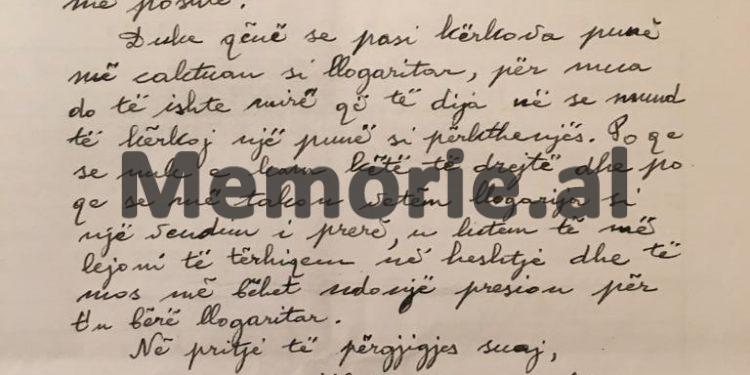 më poshtë.
Duke qënë se pasi kërkova punë
më caktuan si llogaritar, për mua
do të ishte mirë që të dija në se mund
të kërkoj një punë si përkthenjës. Po qe
se nuk e kam këtë të drejtë dhe po
qe se më takon vetëm llogarija si
një vendim i prerë, u lutem të më
lejoni të tërhiqem në heshtje dhe të
mos më bëhet ndonjë presion për
t'u bërë llogaritar.
Në pritje të përgjigjes suaj,
Memorie.al